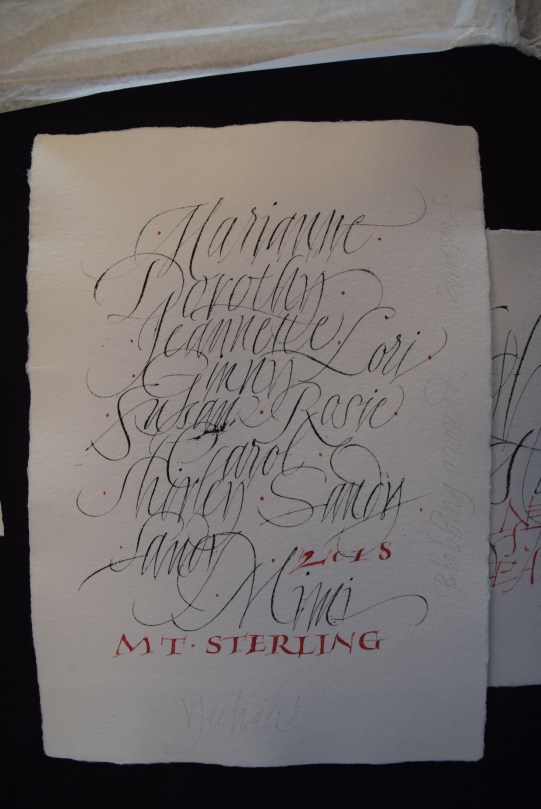 Marianne
Dorothy
Jeannette Lori
Ginny
Susan Rosie
Carol
Shirley Sandy
Sandy
2018
Mimi
MT · STERLING